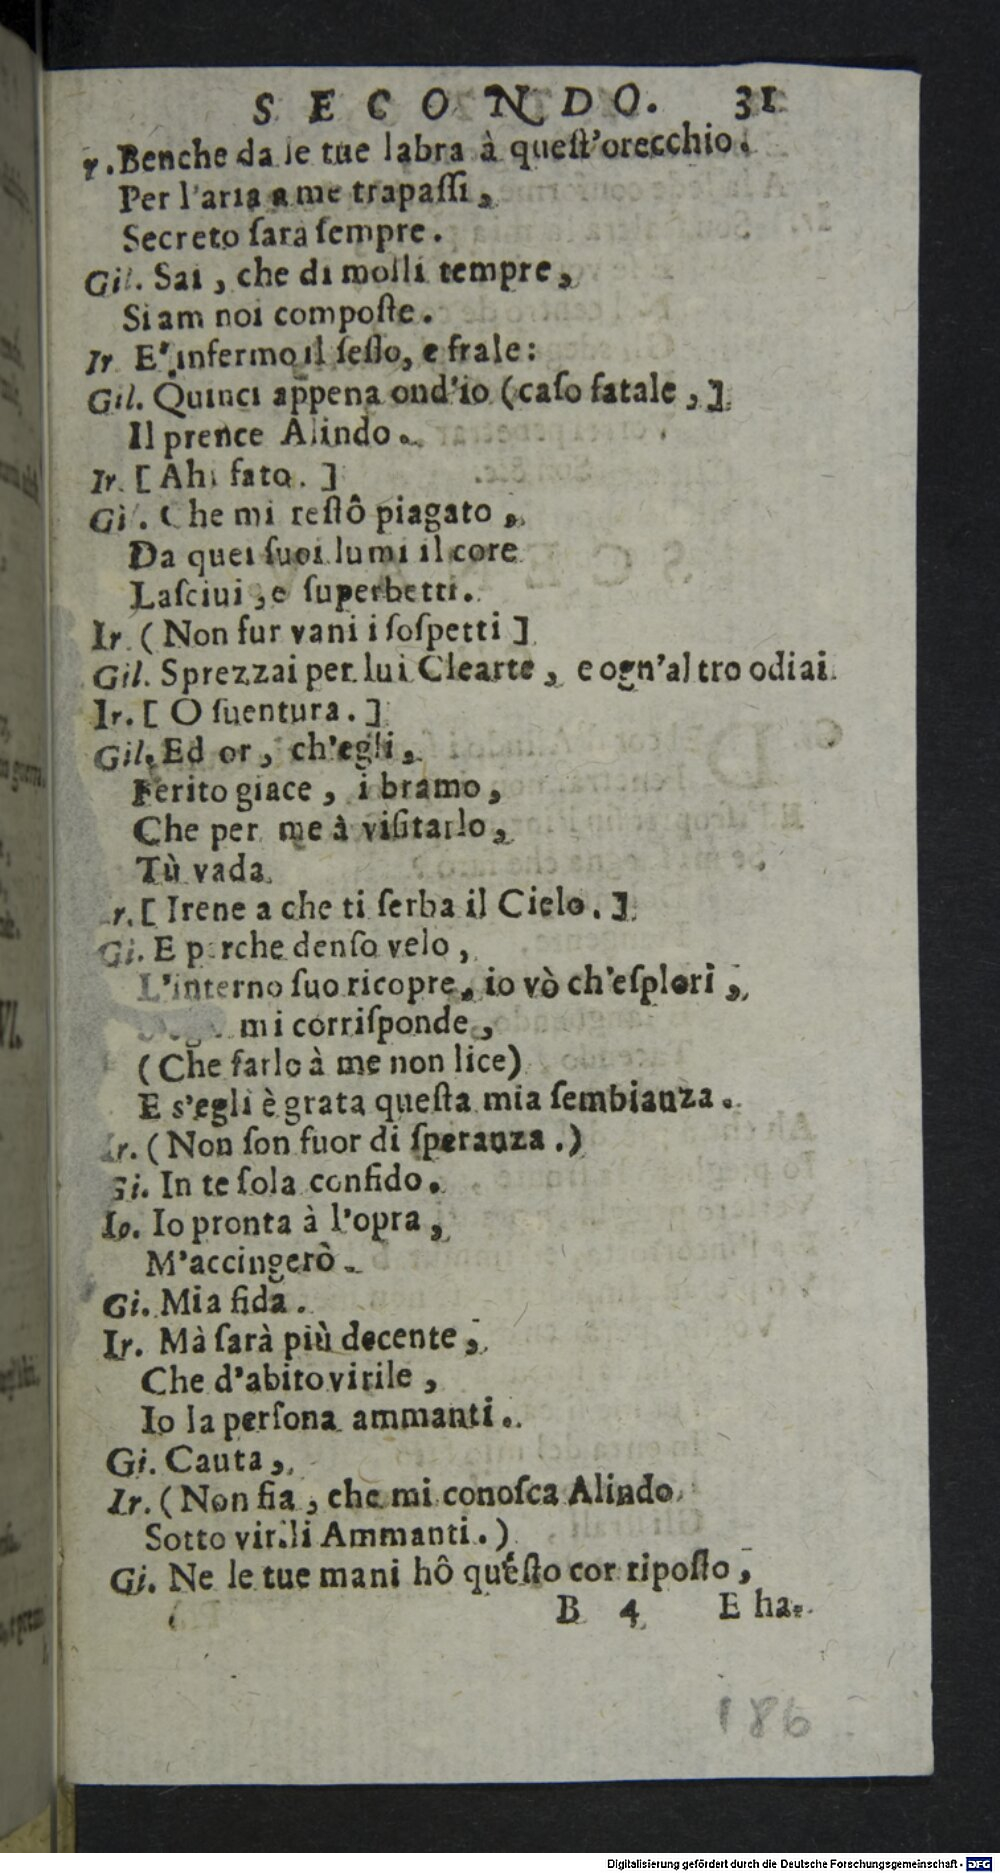 SECONDO. 31
r. Benche da le tue labra à quest'orecchio.
Per l'aria a me trapassi,
Secreto sara sempre.
Gil. Sai, che di molli tempre,
Siam noi composte.
Ir E' infermo il sesso, e frale:
Gil. Quinci appena ond'io (caso fatale, ]
Il prence Alindo.
Ir. [ Ahi fato. ]
Gil. Che mi restô piagato,
Da quei suoi lumi il core
Lasciui, e superbetti.
Ir. (Non fur vani i sospetti ]
Gil. Sprezzai per lui Clearte, e ogn'altro odiai.
Ir. [ O suentura. ]
Gil. Ed or, ch'egli,
Ferito giace, i bramo,
Che per me à visitarlo,
Tù vada.
r. [ Irene a che ti serba il Cielo. ]
Gi. E perche denso velo,
L'interno suo ricopre, io vò ch'esplori,
mi corrisponde,
(Che farlo à me non lice)
E s'egli è grata questa mia sembianza.
Ir. (Non son fuor di speranza.)
Gi. In te sola confido.
Io. Io pronta à l'opra,
M'accingerò.
Gi. Mia fida.
Ir. Mà sarà più decente,
Che d'abito virile,
Io la persona ammanti.
Gi. Cauta,
Ir. (Non fia, che mi conosca Alindo
Sotto virili Ammanti.)
Gi. Ne le tue mani hô questo cor riposto,
B 4 E ha-
186
Digitalisierung gefördert durch die Deutsche Forschungsgemeinschaft - DFG